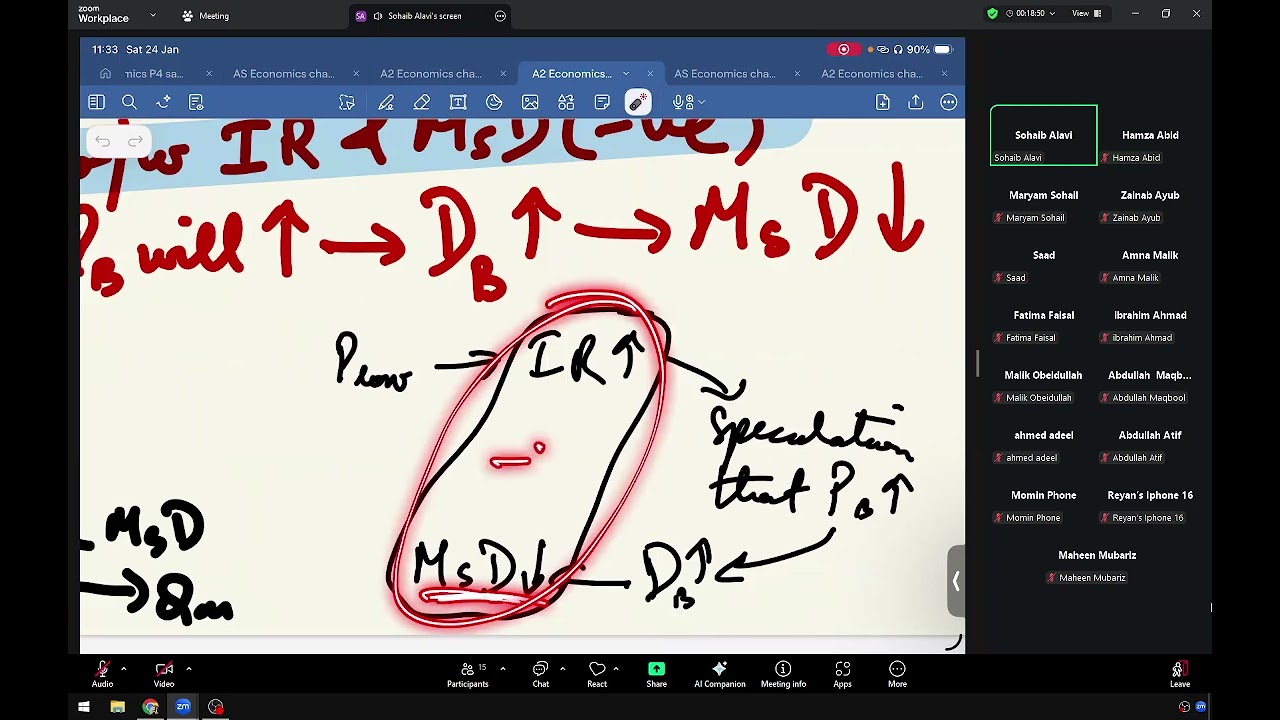 zoom
Workplace
Meeting
SA
Sohaib Alavi's screen
00:18:50
View
11:33 Sat 24 Jan
90%
mics P4 sa...
AS Economics cha...
A2 Economics cha...
A2 Economics...
AS Economics cha...
A2 Economics cha...
IR & MsD (-ve)
PB will ↑ → DB ↑ → MsD ↓
Plow → IR ↑
-
speculation
that PB ↑
MsD
→ Qm
MsD ↓
DB ↑
Sohaib Alavi
Sohaib Alavi
Hamza Abid
Hamza Abid
Maryam Sohail
Maryam Sohail
Zainab Ayub
Zainab Ayub
Saad
Saad
Amna Malik
Amna Malik
Fatima Faisal
Fatima Faisal
ibrahim Ahmad
ibrahim Ahmad
Malik Obeidullah
Malik Obeidullah
Abdullah Maqb...
Abdullah Maqbool
ahmed adeel
ahmed adeel
Abdullah Atif
Abdullah Atif
Momin Phone
Momin Phone
Reyan's Iphone 16
Reyan's Iphone 16
Maheen Mubariz
Maheen Mubariz
Audio
Video
15
Participants
Chat
React
Share
AI Companion
Meeting info
Apps
More
Leave
zm
zm